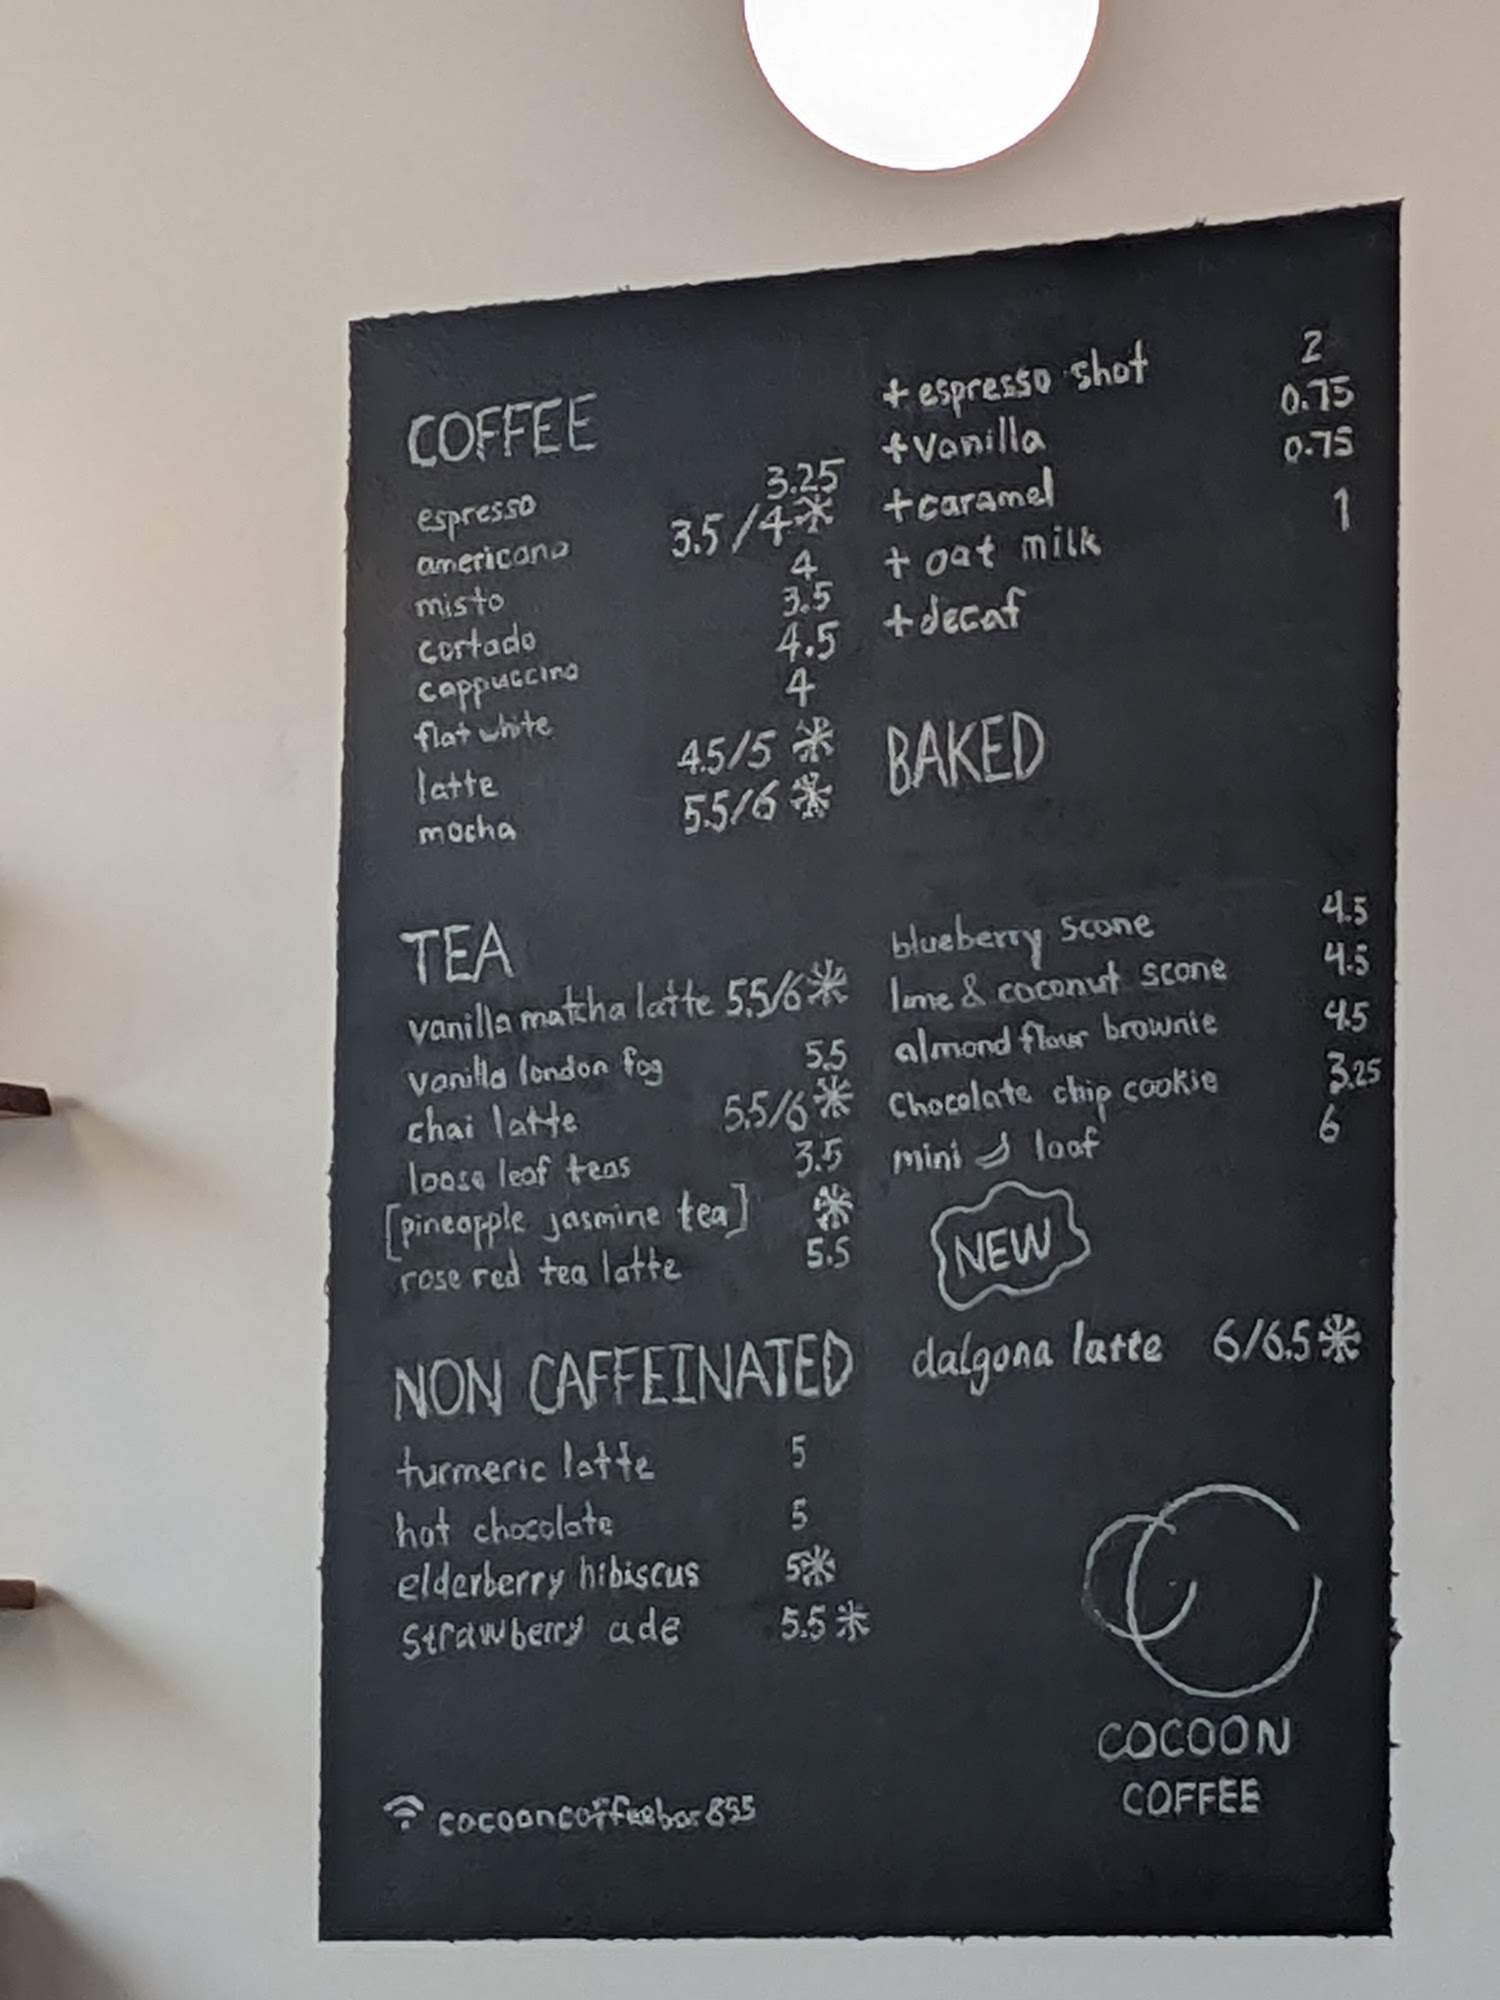 COFFEE
espresso 3.25
americano 3.5/4*
misto 4
cortado 3.5
cappuccino 4.5
flat white 4
latte 4.5/5*
mocha 5.5/6*
TEA
vanilla matcha latte 5.5/6*
vanilla london fog 5.5
chai latte 5.5/6*
loose leaf teas 3.5
[pineapple jasmine tea] *
rose red tea latte 5.5
NON CAFFEINATED
turmeric latte 5
hot chocolate 5
elderberry hibiscus 5*
strawberry ade 5.5*
cocooncoffeebar855
+ espresso shot 2
+ vanilla 0.75
+ caramel 0.75
+ oat milk 1
+ decaf
BAKED
blueberry scone 4.5
lime & coconut scone 4.5
almond flour brownie 4.5
chocolate chip cookie 3.25
mini loaf 6
NEW
dalgona latte 6/6.5*
COCOON
COFFEE